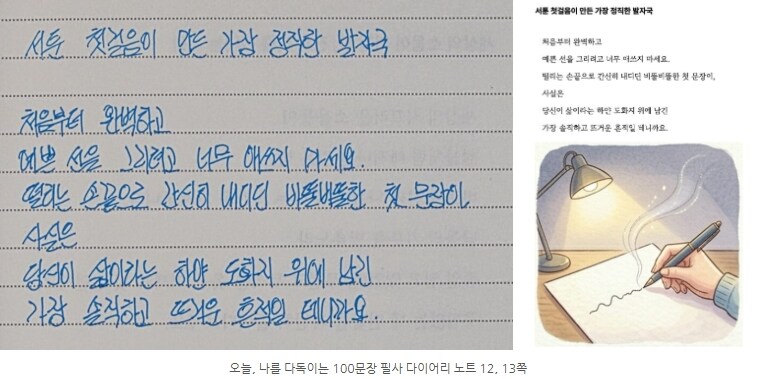 서툰 첫걸음이 만든 가장 정직한 발자국
처음부터 완벽하고
예쁜 선을 그리려고 너무 애쓰지 마세요.
떨리는 손끝으로 간신히 내디딘 비뚤비뚤한 첫 문장이,
사실은
당신이 삶이라는 하얀 도화지 위에 남긴
가장 솔직하고 뜨거운 흔적일 테니까요.
서툰 첫걸음이 만든 가장 정직한 발자국
처음부터 완벽하고
예쁜 선을 그리려고 너무 애쓰지 마세요.
떨리는 손끝으로 간신히 내디딘 비뚤비뚤한 첫 문장이,
사실은
당신이 삶이라는 하얀 도화지 위에 남긴
가장 솔직하고 뜨거운 흔적일 테니까요.
오늘, 나를 다독이는 100문장 필사 다이어리 노트 12, 13쪽